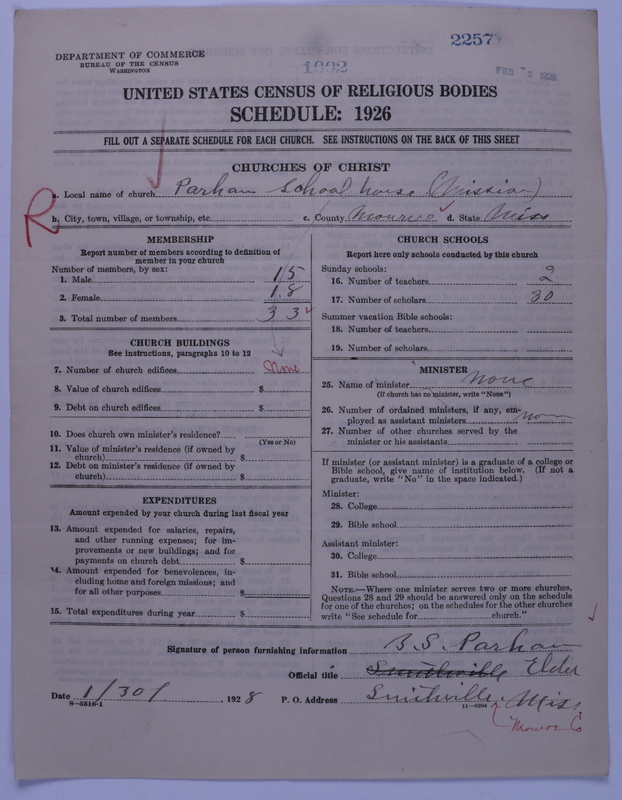 2257
DEPARTMENT OF COMMERCE
BUREAU OF THE CENSUS
WASHINGTON
1002
FEB 2 1928
UNITED STATES CENSUS OF RELIGIOUS BODIES
SCHEDULE: 1926
FILL OUT A SEPARATE SCHEDULE FOR EACH CHURCH. SEE INSTRUCTIONS ON THE BACK OF THIS SHEET
CHURCHES OF CHRIST
a. Local name of church Parham School house (Mission)
R
b. City, town, village, or township, etc. c. County Monroe d. State Miss
MEMBERSHIP
Report number of members according to definition of
member in your church
Number of members, by sex:
1. Male 15
2. Female 18
3. Total number of members 33
CHURCH BUILDINGS
See instructions, paragraphs 10 to 12
7. Number of church edifices None
8. Value of church edifices $
9. Debt on church edifices $
10. Does church own minister's residence?
(Yes or No)
11. Value of minister's residence (if owned by
church) $
12. Debt on minister's residence (if owned by
church) $
EXPENDITURES
Amount expended by your church during last fiscal year
13. Amount expended for salaries, repairs,
and other running expenses; for im-
provements or new buildings; and for
payments on church debt $
14. Amount expended for benevolences, in-
cluding home and foreign missions; and
for all other purposes $
15. Total expenditures during year $
CHURCH SCHOOLS
Report here only schools conducted by this church
Sunday schools:
16. Number of teachers 2
17. Number of scholars 30
Summer vacation Bible schools:
18. Number of teachers
19. Number of scholars
MINISTER
25. Name of minister none
(If church has no minister, write "None")
26. Number of ordained ministers, if any, em-
ployed as assistant ministers non
27. Number of other churches served by the
minister or his assistants
If minister (or assistant minister) is a graduate of a college or
Bible school, give name of institution below. (If not a
graduate, write "No" in the space indicated.)
Minister:
28. College
29. Bible school
Assistant minister:
30. College
31. Bible school
NOTE.—Where one minister serves two or more churches,
Questions 28 and 29 should be answered only on the schedule
for one of the churches; on the schedules for the other churches
write "See schedule for church."
Signature of person furnishing information B. S. Parham
Official title Smithville Elder
Date 1/30/, 1928 P. O. Address Smithville, Miss
8—5518-1 11—6204
Monroe Co